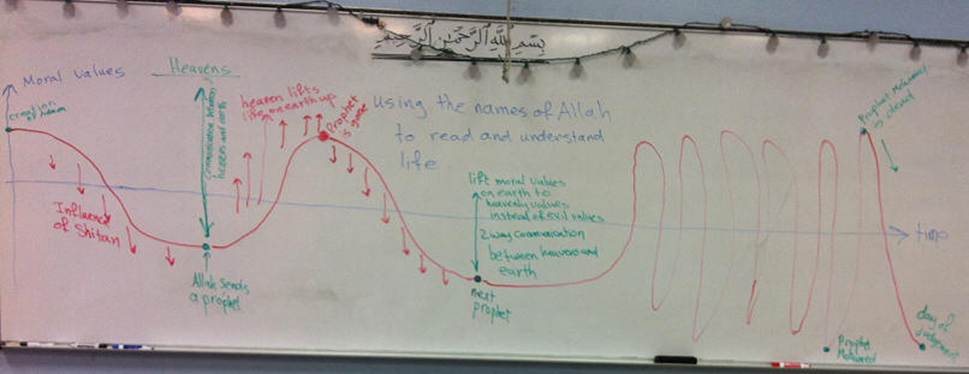 بِسْمِ اللَّهِ الرَّحْمَٰنِ الرَّحِيمِ
Moral values
Heavens
creation
of Adam
Communication between
heavens and earth
heaven lifts
life on earth up
Prophet
is gone
Using the names of Allah
to read and understand
life
Influence
of Shitan
Allah sends
a prophet
lift moral values
on earth to
heavenly values
instead of evil values
2 way communication
between heavens and
earth
next
prophet
Prophet Mohamed
is dead
time
Prophet
Mohamed
day of
judgment